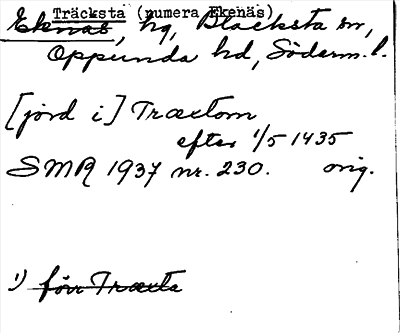 Träcksta (numera Ekenäs)
Ekenäs, hg, Blacksta sn,
Oppunda hd, Söderm. l.
[jord i] Træxtom
efter 1/5 1435
SMR 1937 nr. 230. orig.
1) förr Træxta